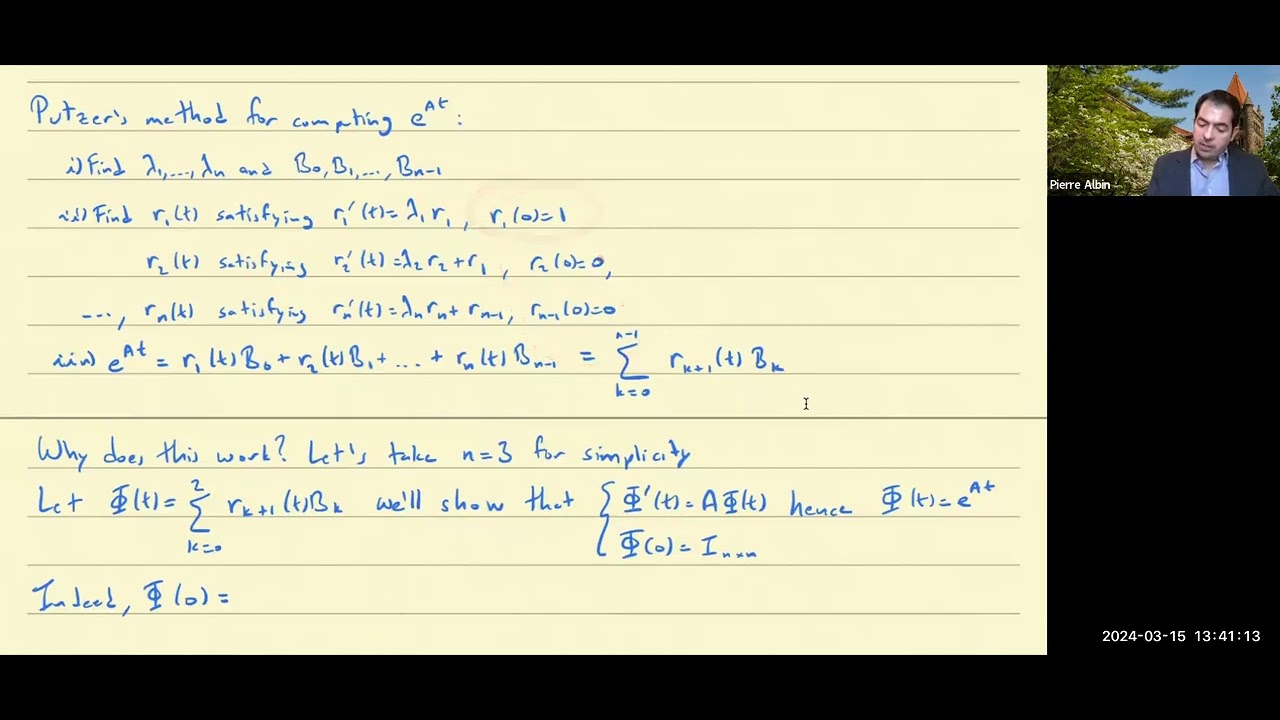 Putzer's method for computing e^{At}:
i) Find λ₁,...,λₙ and B₀,B₁,...,Bₙ₋₁
ii) Find r₁(t) satisfying r₁'(t)=λ₁r₁, r₁(0)=1
r₂(t) satisfying r₂'(t)=λ₂r₂+r₁, r₂(0)=0,
..., rₙ(t) satisfying rₙ'(t)=λₙrₙ+rₙ₋₁, rₙ₋₁(0)=0
iii) e^{At} = r₁(t)B₀+r₂(t)B₁+...+rₙ(t)Bₙ₋₁ = ∑_{k=0}^{n-1} r_{k+1}(t)B_k
Why does this work? Let's take n=3 for simplicity
Let Φ(t)=∑_{k=0}^{2} r_{k+1}(t)B_k we'll show that { Φ'(t)=AΦ(t) hence Φ(t)=e^{At}
Φ(0)=I_{n×n}
Indeed, Φ(0)=
Pierre Albin
2024-03-15 13:41:13